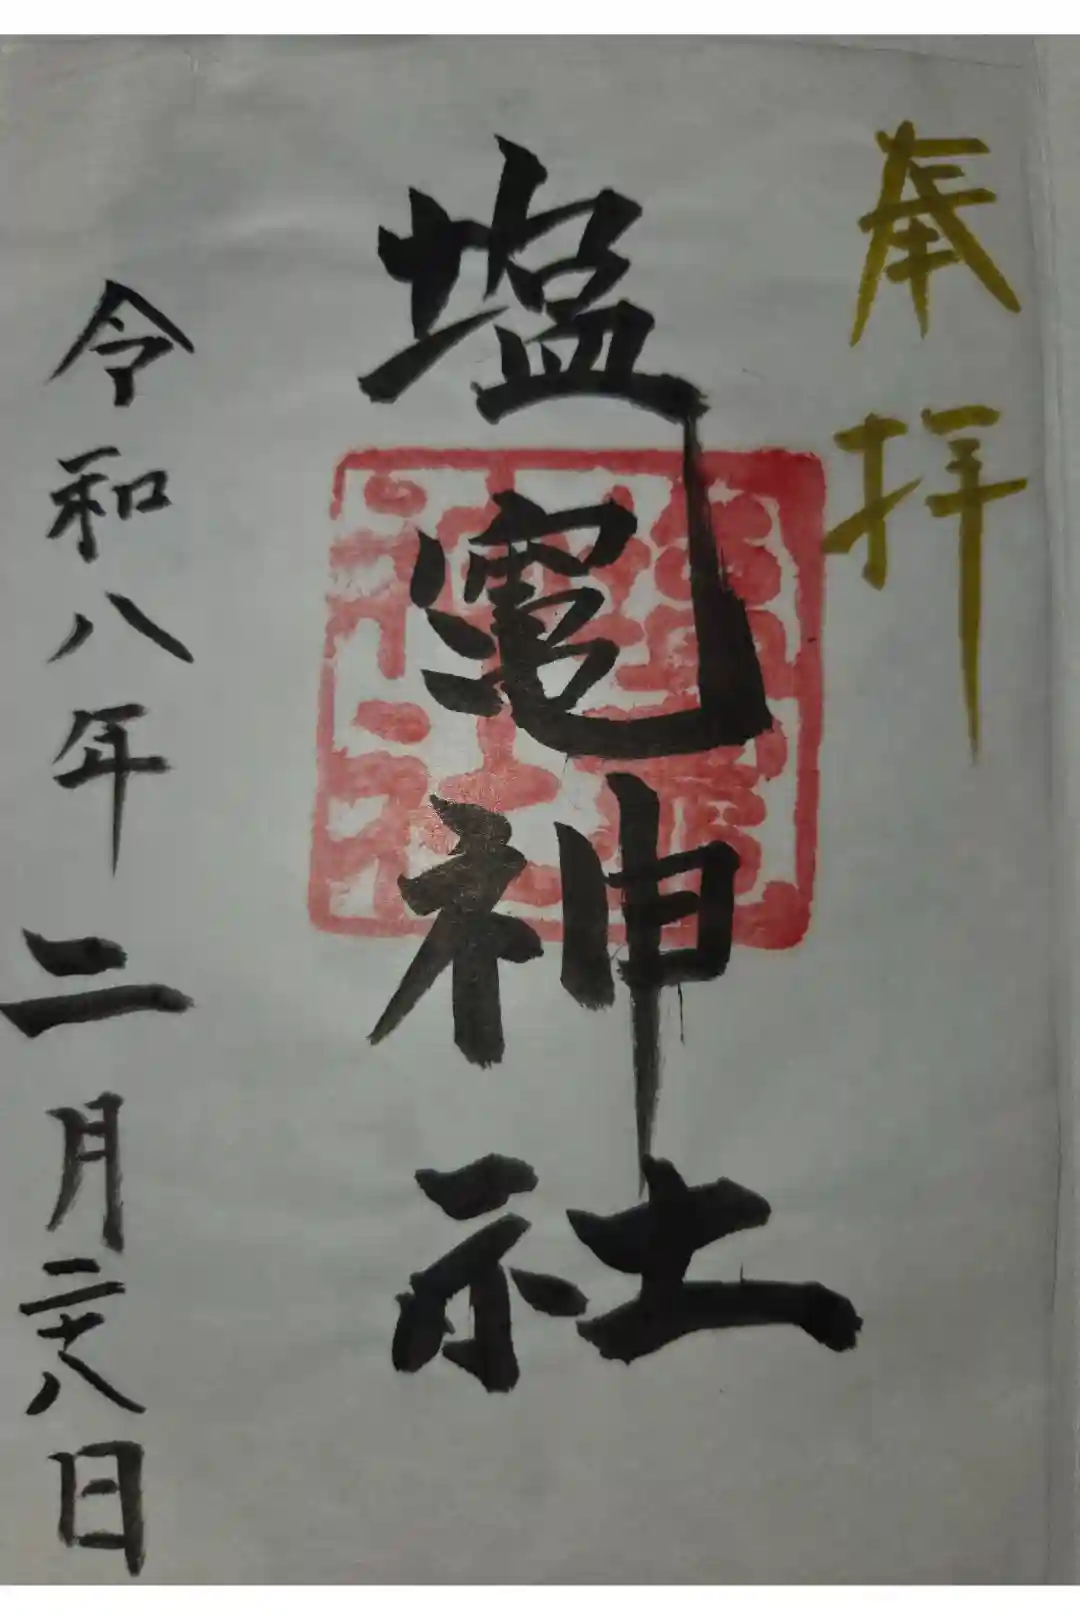 奉拝
塩竃神社
令和八年二月二十八日